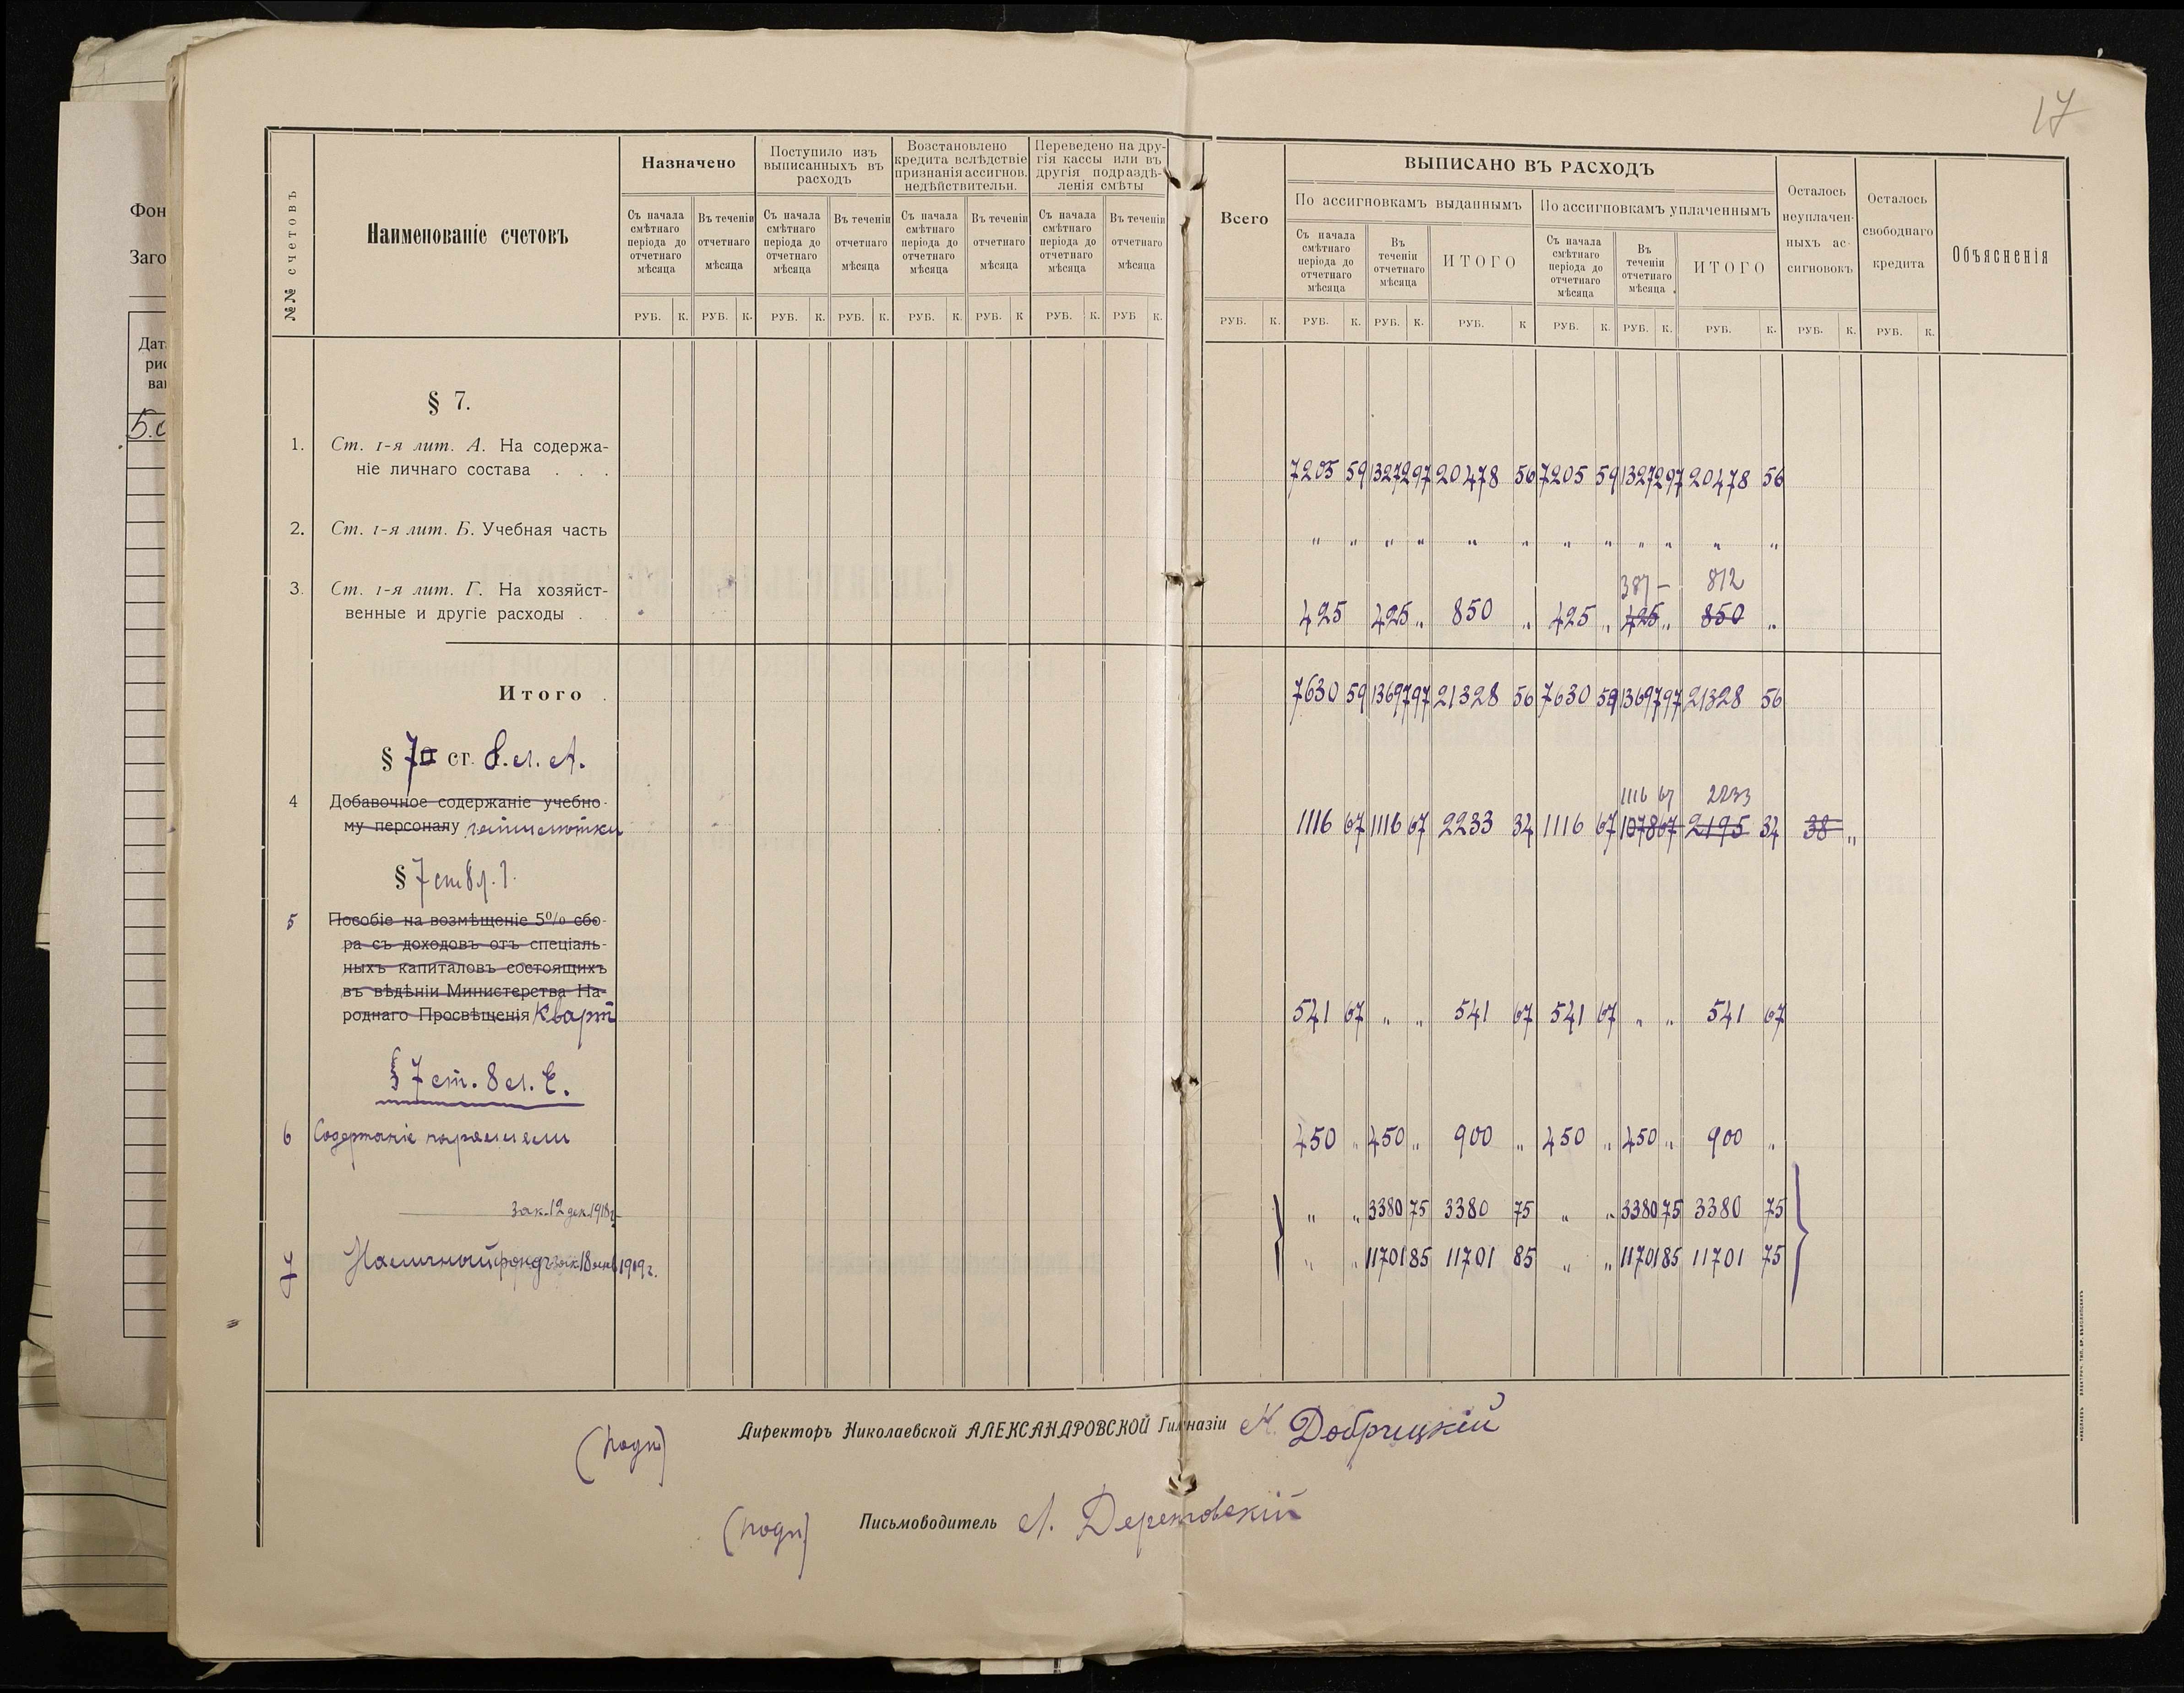 17
Фон
Заго
Дат
рис
ва
5.с
№№ счетовъ
Наименованіе счетовъ
Назначено
Поступило изъ
выписанныхъ въ
расходъ
Возстановлено
кредита вслѣдствіе
признанія ассигнов.
недѣйствительн.
Переведено на дру-
гія кассы или въ
другія подраздѣ-
ленія смѣты
Всего
ВЫПИСАНО ВЪ РАСХОДЪ
По ассигновкамъ выданнымъ
По ассигновкамъ уплаченнымъ
Осталось
неуплачен-
ныхъ ас-
сигновокъ
Осталось
свободнаго
кредита
Объясненія
Съ начала
смѣтнаго
періода до
отчетнаго
мѣсяца
Въ теченіи
отчетнаго
мѣсяца
Съ начала
смѣтнаго
періода до
отчетнаго
мѣсяца
Въ теченіи
отчетнаго
мѣсяца
Съ начала
смѣтнаго
періода до
отчетнаго
мѣсяца
Въ теченіи
отчетнаго
мѣсяца
Съ начала
смѣтнаго
періода до
отчетнаго
мѣсяца
Въ теченіи
отчетнаго
мѣсяца
Съ начала
смѣтнаго
періода до
отчетнаго
мѣсяца
Въ
теченіи
отчетнаго
мѣсяца
ИТОГО
Съ начала
смѣтнаго
періода до
отчетнаго
мѣсяца
Въ
теченіи
отчетнаго
мѣсяца
ИТОГО
РУБ. К. РУБ. К. РУБ. К. РУБ. К. РУБ. К. РУБ. К РУБ. К. РУБ К. РУБ. К. РУБ. К. РУБ. К. РУБ. К РУБ. К. РУБ. К. РУБ. К. РУБ. К. РУБ. К.
§ 7.
1. Ст. 1-я лит. А. На содержа-
ніе личнаго состава . . . 7205 59 13272 97 20478 56 7205 59 13272 97 20478 56
2. Ст. 1-я лит. Б. Учебная часть " " " " " " " " " " " "
387 – 812
3. Ст. 1-я лит. Г. На хозяйст-
венные и другіе расходы . . 425 425 " 850 " 425 " 425 " 850 "
Итого . 7630 59 13697 97 21328 56 7630 59 13697 97 21328 56
§ 7 ст. 8. л. А.
1116 67 2233
4 Добавочное содержаніе учебно-
му персоналу 1116 67 1116 67 2233 34 1116 67 1078 67 2195 34 38 "
§ 7 ст 8 л. 
5 Пособіе на возмѣщеніе 5% сбо-
ра съ доходовъ отъ спеціаль-
ныхъ капиталовъ состоящихъ
въ вѣдѣніи Министерства На-
роднаго Просвѣщенія Кварт 541 67 " " 541 67 541 67 " " 541 67
§ 7 ст. 8 л. Е.
6 Содержаніе 450 " 450 " 900 " 450 " 450 " 900 "
зак. 12 дек. 1918г. " " 3380 75 3380 75 " " 3380 75 3380 75
7 Наличный фондъ зак 18 янв 1919 г. " " 11701 85 11701 85 " " 11701 85 11701 75
(подп) Директоръ Николаевской АЛЕКСАНДРОВСКОЙ Гимназіи Н. Добрицкій
(подп) Письмоводитель А.